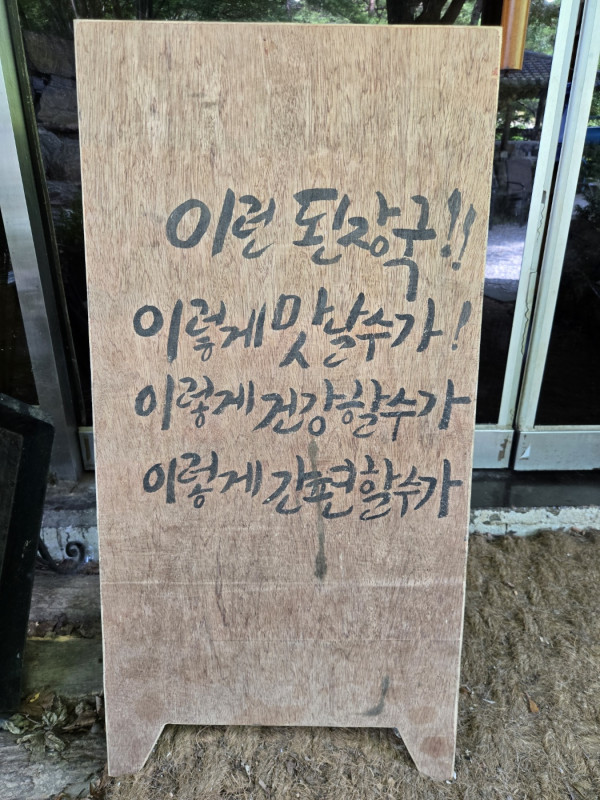 이런 된장국!!
이렇게 맛날수가!
이렇게 건강할수가
이렇게 간편할수가